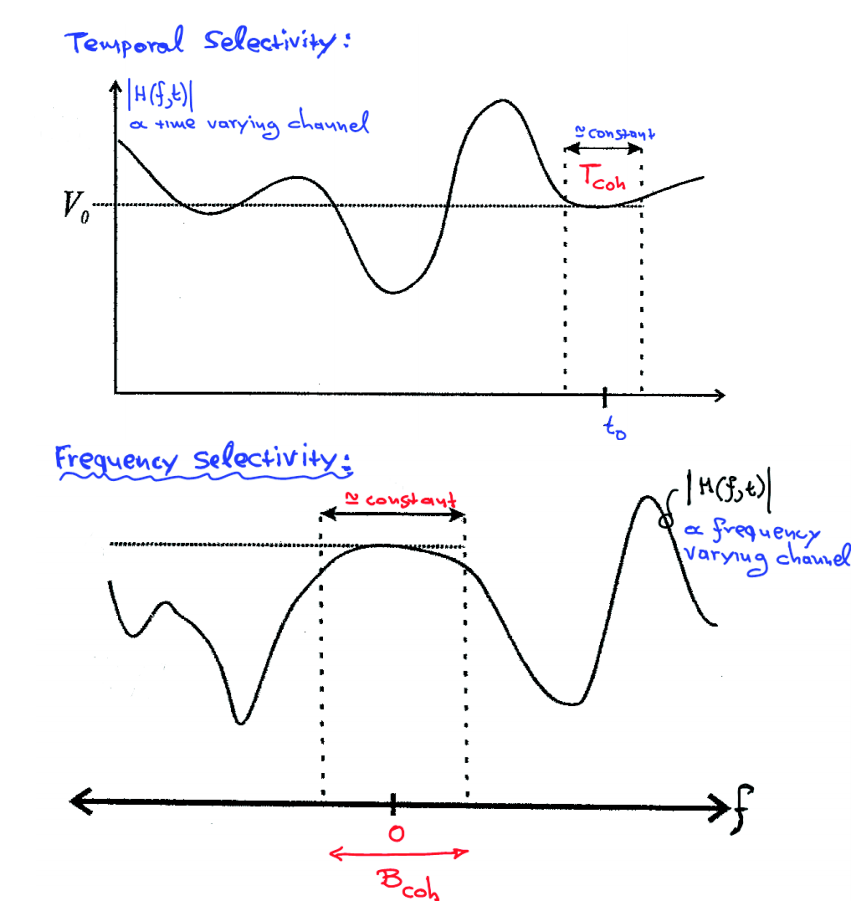 Temporal Selectivity:
|H(f,t)|
a time varying channel
≃ constant
T_coh
V_0
t_0
Frequency Selectivity:
≃ constant
|H(f,t)|
a frequency
varying channel
f
0
B_coh